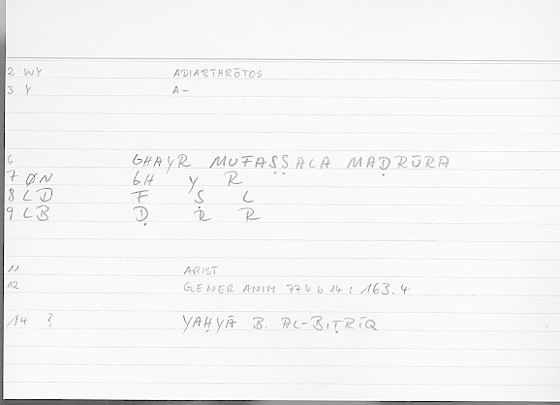 2 WY ADIARTHRŌTOS
3 Y A-
6 GHAYR MUFAṢṢALA MAḌRŪRA
7 ØN GH Y R
8 LD F Ṣ L
9 LB Ḍ R R
11 ARIST
12 GENER ANIM 774 b 14 : 163.4
14 ? YAḤYĀ B. AL-BIṬRĪQ